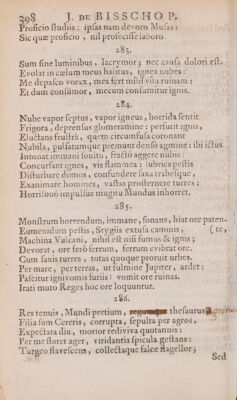 398 J. DE BISSCHOP.
Proficio studiis: ipsas tam devoro Musas:
Sic quæ proficio, nil profecisse laboro.
283.
Sum sine luminibus, lacrymor; nec causa dolori est.
Evolat in cœlum meus halitus, ignea nubes:
Me depasco vorax, mea fert mihi vita ruinam:
Et dum consumor, mecum consumitur ignis.
284.
Nube vapor septus, vapor igneus, horrida sentit
Frigora, deprensus glomeramine: persurit ignis,
Eluctans frustra, quem circumfusa coronant
Nubila, pulsatumque premunt denso agmine: ibi ictus
Intonat immani sonitu, fractio aggere nubis:
Concursant ignes, vis flammea: lubrica pestis
Disturbare domos, confundere saxa trabesque,
Exanimare homines, vastas prosternere turres:
Horrisono impulsus mugitu Mundus inhorret.
285.
Monstrum horrendum, immane, sonans, hiat ore paten-
Eumenidum pestis, Stygiis extusa caminis, (te,
Machina Vulcani, nihil est nisi fumus & ignis:
Devorat, ore ferò ferrum, ferrum evibrat ore.
Cum saxis turres, totas quoque proruit urbes.
Per mare, per terras, ut fulmine Jupiter, ardet:
Pascitur ignivomis furiis: vomit ore ruinas.
Irati muto Reges hoc ore loquuntur.
286.
Res tenuis, Mundi pretium, thesaurus
Filia sum Cereris, corrupta, sepulta per agros,
Expectata diu, morior rediviva quotannis:
Per me floret ager, viridantia spicula gestans:
Turgeo flavescens, collectaque falce flagellor;
Sed